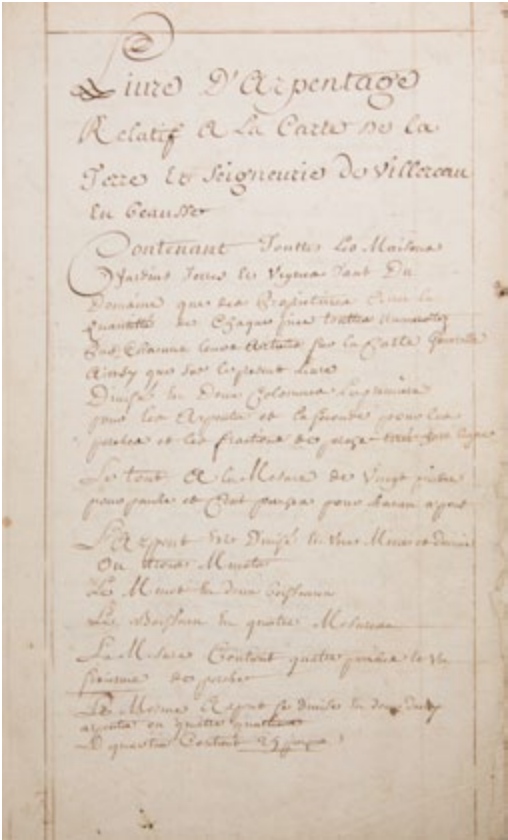 Livre D'Arpentage
Relatif A La Carte De la
Terre Et Seigneurie De Villereau
En Beausse
Contenant Touttes Les Maisons
Jardins Terres Et Vignes Tant Du
Domaine que des Proprietaires Avec la
quantité de Chaque piece touttes numerottés
Par Chacune leurs Articles sur la Carte Generalle
Ainsy que sur le present Livre
Divisé En Deux Colonnes La premiere
pour les Arpents et la seconde pour les
perches et les fractions de perche
Le tout A la Mesure de Vingt pieds
pour perche et Cent perches pour chacun arpent
L'Arpent Est Divisé En Une Mine et demie
Ou trois Minots
Le Minot En deux Boisseaux
Le Boisseau En quatre Mesures
La Mesure Contient quatre perches et un
sixieme de perche
Le Mesme Arpent se divise En deux demy
arpents ou quatre quartiers
Le quartier Contient 25 perches